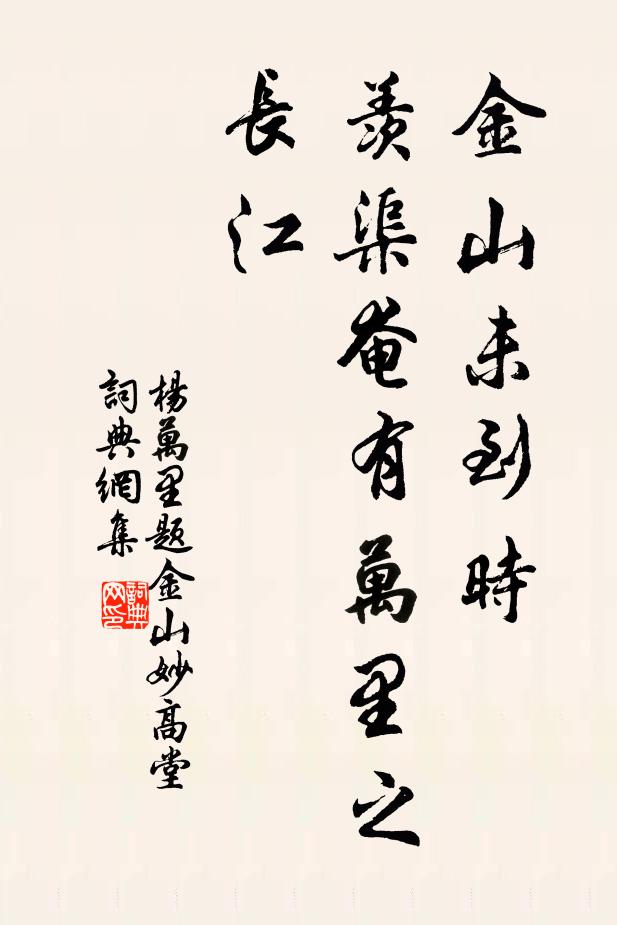 金山未到時
羨渠奄有萬里之
長江
楊萬里題金山妙高堂
詞典網集
詞典网印